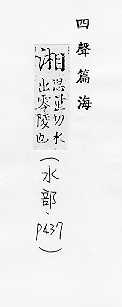 四聲篇海
湘
思切水
出零陵也
(水部、p437)